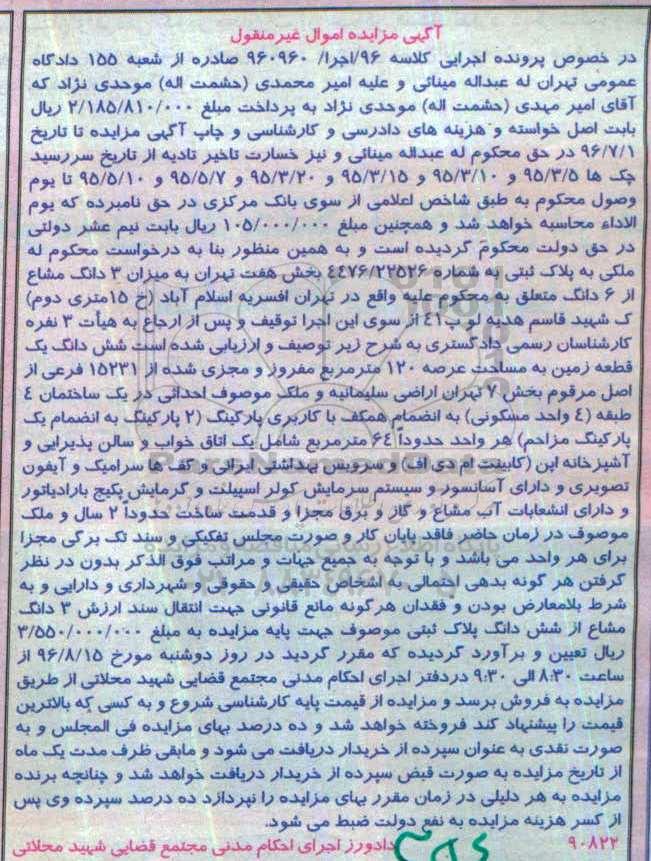 آگهی مزایده اموال غیرمنقول
در خصوص پرونده اجرایی کلاسه ۹۶/اجرا/ ۹۶۰۹۶۰ صادره از شعبه ۱۵۵ دادگاه
عمومی تهران له عبداله مینائی و علیه امیر محمدی (حشمت اله) موحدی نژاد که
آقای امیر مهدی (حشمت اله) موحدی نژاد به پرداخت مبلغ ۲/۱۸۵/۸۱۰/۰۰۰ ریال
بابت اصل خواسته و هزینه های دادرسی و کارشناسی و چاپ آگهی مزایده تا تاریخ
۹۶/۷/۱ در حق محکوم له عبداله مینائی و نیز خسارت تاخیر تادیه از تاریخ سررسید
چک ها ۹۵/۳/۵ و ۹۵/۳/۱۰ و ۹۵/۳/۱۵ و ۹۵/۳/۲۰ و ۹۵/۵/۷ و ۹۵/۵/۱۰ تا یوم
وصول محکوم به طبق شاخص اعلامی از سوی بانک مرکزی در حق نامبرده که یوم
الاداء محاسبه خواهد شد و همچنین مبلغ ۱۰۵/۰۰۰/۰۰۰ ریال بابت نیم عشر دولتی
در حق دولت محکوم گردیده است و به همین منظور بنا به درخواست محکوم له
ملکی به پلاک ثبتی به شماره ۴۴۷۶/۲۲۵۲۶ بخش هفت تهران به میزان ۳ دانگ مشاع
از ۶ دانگ متعلق به محکوم علیه واقع در تهران افسریه اسلام آباد (خ ۱۵متری دوم)
ک شهید قاسم هدیه لو پ ۴۱ از سوی این اجرا توقیف و پس از ارجاع به هیأت ۳ نفره
کارشناسان رسمی دادگستری به شرح زیر توصیف و ارزیابی شده است شش دانگ یک
قطعه زمین به مساحت عرصه ۱۲۰ مترمربع مفروز و مجزی شده از ۱۵۲۳۱ فرعی از
اصل مرقوم بخش ۷ تهران اراضی سلیمانیه و ملک موصوف احداثی در یک ساختمان ۴
طبقه (۴ واحد مسکونی) به انضمام همکف با کاربری پارکینگ (۲ پارکینگ به انضمام یک
پارکینگ مزاحم) هر واحد حدوداً ۶۴ مترمربع شامل یک اتاق خواب و سالن پذیرایی و
آشپزخانه اپن (کابینت ام دی اف) و سرویس بهداشتی ایرانی و کف ها سرامیک و آیفون
تصویری و دارای آسانسور و سیستم سرمایش کولر اسپیلت و گرمایش پکیج بارادیاتور
و دارای انشعابات آب مشاع و گاز و برق مجزا و قدمت ساخت حدوداً ۲ سال و ملک
موصوف در زمان حاضر فاقد پایان کار و صورت مجلس تفکیکی و سند تک برگی مجزا
برای هر واحد می باشد و با توجه به جمیع جهات و مراتب فوق الذکر بدون در نظر
گرفتن هر گونه بدهی احتمالی به اشخاص حقیقی و حقوقی و شهرداری و دارایی و به
شرط بلامعارض بودن و فقدان هرگونه مانع قانونی جهت انتقال سند ارزش ۳ دانگ
مشاع از شش دانگ پلاک ثبتی موصوف جهت پایه مزایده به مبلغ ۳/۵۵۰/۰۰۰/۰۰۰
ریال تعیین و برآورد گردیده که مقرر گردید در روز دوشنبه مورخ ۹۶/۸/۱۵ از
ساعت ۸:۳۰ الی ۹:۳۰ دردفتر اجرای احکام مدنی مجتمع قضایی شهید محلاتی از طریق
مزایده به فروش برسد و مزایده از قیمت پایه کارشناسی شروع و به کسی که بالاترین
قیمت را پیشنهاد کند فروخته خواهد شد و ده درصد بهای مزایده فی المجلس و به
صورت نقدی به عنوان سپرده از خریدار دریافت می شود و مابقی ظرف مدت یک ماه
از تاریخ مزایده به صورت قبض سپرده از خریدار دریافت خواهد شد و چنانچه برنده
مزایده به هر دلیلی در زمان مقرر بهای مزایده را نپردازد ده درصد سپرده وی پس
از کسر هزینه مزایده به نفع دولت ضبط می شود.
۹۰۸۲۲ دادورز اجرای احکام مدنی مجتمع قضایی شهید محلاتی